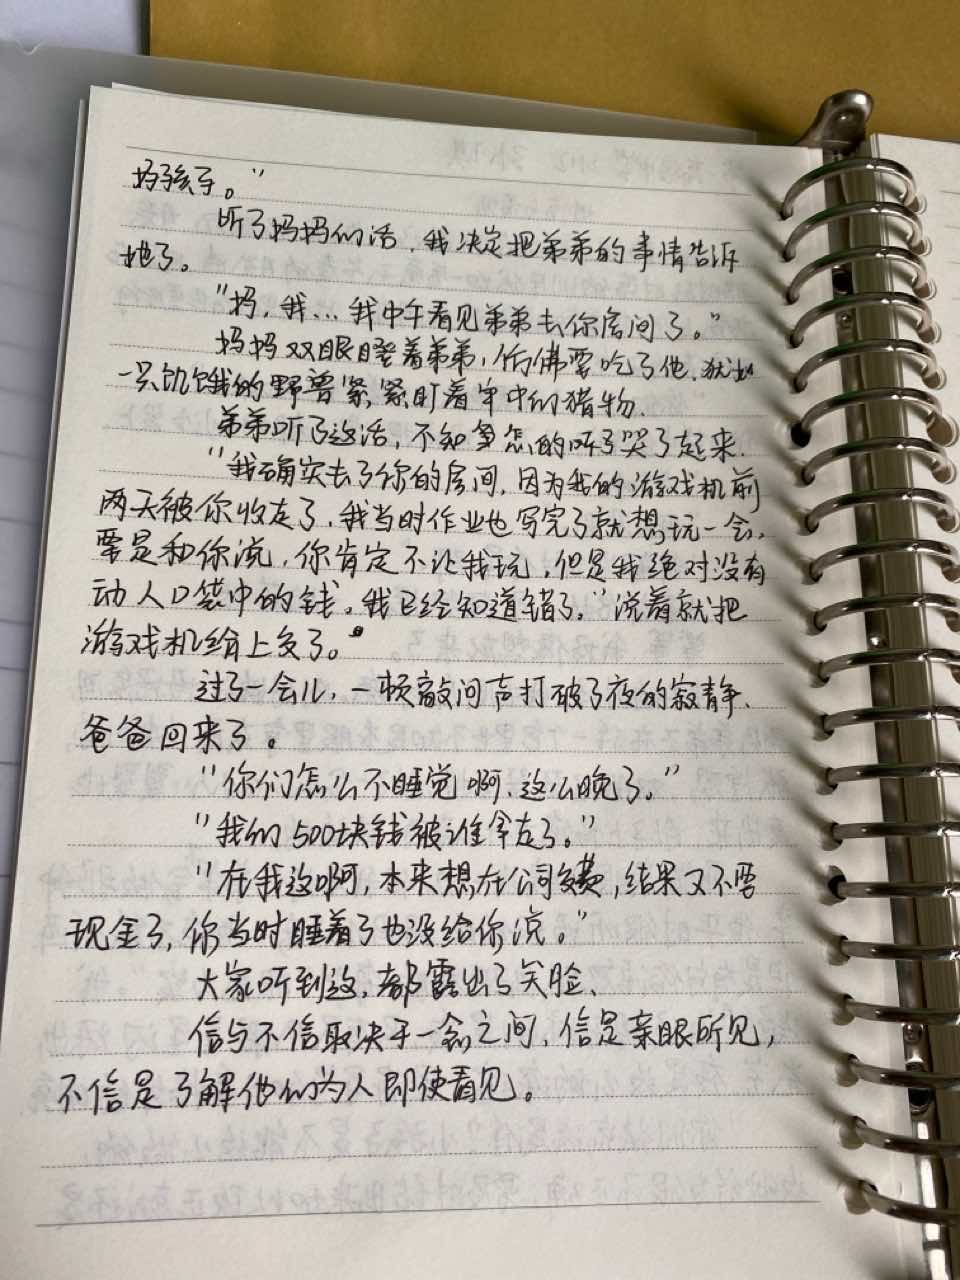 好孩子。"
听了妈妈的话，我决定把弟弟的事情告诉
她了。
"妈，我…我中午看见弟弟去你房间了。"
妈妈双眼瞪着弟弟，仿佛要吃了他，犹如
一只饥饿的野兽紧紧盯着牢中的猎物.
弟弟听了这话，不知怎的听了哭了起来.
"我确实去了你的房间，因为我的游戏机前
两天被你收走了，我当时作业也写完了就想玩一会，
要是和你说，你肯定不让我玩，但是我绝对没有
动人口袋中的钱。我已经知道错了，"说着就把
游戏机给上交了。
过了一会儿，一顿敲门声打破了夜的寂静、
爸爸回来了。
"你们怎么不睡觉啊，这么晚了。"
"我的500块钱被谁拿走了。"
"在我这啊，本来想在公司缴费，结果又不要
现金了，你当时睡着了也没给你说。"
大家听到这，都露出了笑脸、
信与不信取决于一念之间，信是亲眼所见，
不信是了解他的为人即使看见。